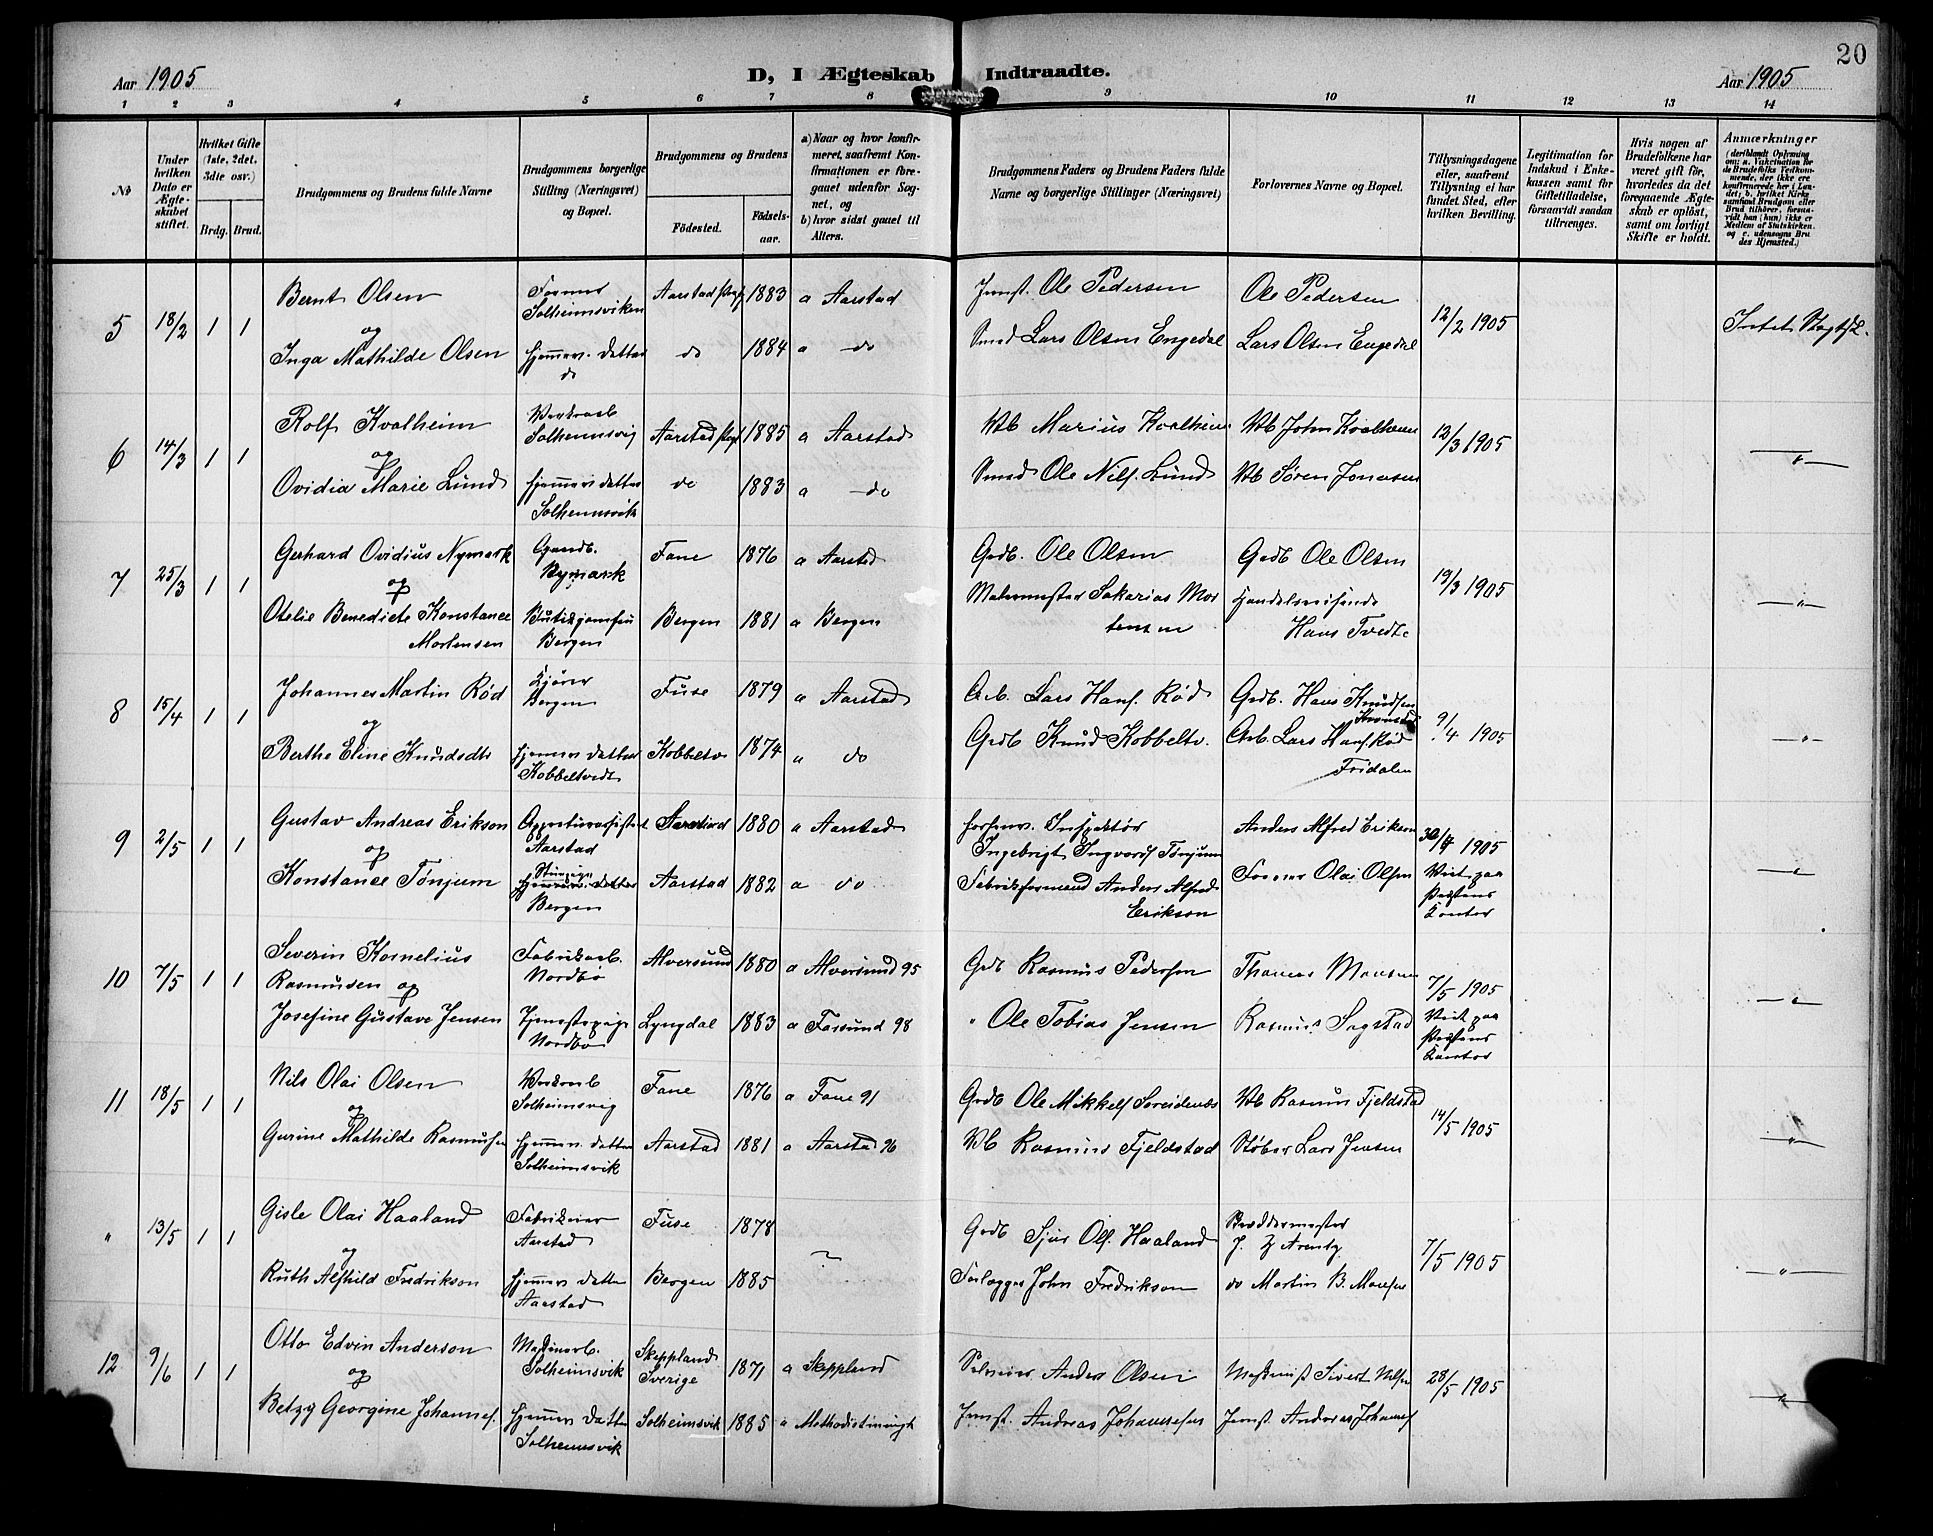 20
Aar 1905
D, I Ægteskab Indtraadte.
Aar 1905
1 2 3 4 5 6 7 8 9 10 11 12 13 14
No
Under hvilken Dato er Ægteskabet stiftet.
Hvilket Gifte (1ste, 2det, 3die osv.)
Brdg. Brud.
Brudgommens og Brudens fulde Navne
Brudgommens borgerlige Stilling (Næringsvei) og Bopæl.
Brudgommens og Brudens
Födested.
Födselsaar.
a) Naar og hvor konfirmeret, saafremt Konfirmationen er foregaaet udenfor Sognet, og
b) hvor sidst gaaet til Alters.
Brudgommens Faders og Brudens Faders fulde Navne og borgerlige Stillinger (Næringsvei)
Forlovernes Navne og Bopæl.
Tillysningsdagene eller, saafremt Tillysning ei har fundet Sted, efter hvilken Bevilling.
Legitimation for Indskud i Enkekassen samt for Giftetilladelse, forsaavidt saadan tiltrænges.
Hvis nogen af Brudefolkene har været gift før, hvorledes da det foregaaende Ægteskab er oplöst, samt om lovligt Skifte er holdt.
Anmærkninger
5 18/2 1 1 Bernt Olsen Former Solheimsviken Aarstad 1883 a Aarstad Ole Pedersen Ole Pedersen 12/2 1905 Intet
og
Inga Mathilde Olsen hjemmev. datter do do 1884 a do Smed Lars Olsen Engedal Lars Olsen Engedal
6 14/3 1 1 Rolf Kvalheim Solheimsvig Aarstad 1885 a Aarstad Marius Kvalheim John Kvalheim 12/3 1905 "
og
Ovidia Marie Lund hjemmev. datter Solheimsvik do 1883 a do Smed Ole Nils. Lund Søren Jonassen
7 25/3 1 1 Gerhard Ovidius Nymark Gaardb. Nymark Fane 1876 a Aarstad Grdb. Ole Olsen Grdb. Ole Olsen 19/3 1905 "
og
Otelie Benedicte Konstance Mortensen Butikjomfru Bergen Bergen 1881 a Bergen Malermester Sakarias Mortensen Handelsreisende Hans Tvedt
8 15/4 1 1 Johannes Martin Rød Kjører Bergen Fuse 1879 a Aarstad Arb. Lars Hans. Rød Grdb. Hans Knudsen 9/4 1905 "
og
Berthe Eline Knudsdtr hjemmev. datter Kobbeltvedt Kobbeltv. 1874 a do Grdb Knud Kobbeltv. Arb. Lars Hans. Rød Fridalen
9 2/5 1 1 Gustav Andreas Erikson Aarstad Aarstad 1880 a Aarstad forhenv. Inspektør Ingebrigt Ingvards. Tønjum Anders Alfred Erikson 30/4 1905 Viet paa Prestens Kontor "
og
Konstance Tønjum hjemmev. datter Bergen Aarstad 1882 a do Fabrikformand Anders Alfred Erikson Former Olai Olsen
10 7/5 1 1 Severin Kornelius Rasmusen og Fabrikarb. Nordbø Alversund 1880 a Alversund 95 Grdb Rasmus Pedersen Thomas Monsen 7/5 1905 Viet paa Prestens Kontor "
Josefine Gustave Jensen Tjenestepige Nordbø Lyngdal 1883 a Farsund 98 " Ole Tobias Jensen Rasmus Sagstad
11 18/5 1 1 Nils Olai Olsen Solheimsvig Fane 1876 a Fane 91 Grdb Ole Mikkels. Rasmus Fjeldstad 14/5 1905 "
og
Gurine Mathilde Rasmusen hjemmev. datter Solheimsvik Aarstad 1881 a Aarstad 96 Rasmus Fjeldstad Støber Lars Jensen
" 13/5 1 1 Gisle Olai Haaland Aarstad Fuse 1878 Grdb Sjur Ols. Haaland Skræddermester J. Z Arentz 7/5 1905 "
og
Ruth Alfhild Fredrikson hjemmev. datter Aarstad Bergen 1885 John Fredrikson do Martin B.
12 9/6 1 1 Otto Edvin Anderson Solheimsvik Skeppland Sverige 1871 a Skeppland Anders Olsen Sivert Nilsen 28/5 1905 "
og
Betzy Georgine Johannes. hjemmev. datter Solheimsvik Solheimsvik 1885 a Andreas Johannesen Andreas Johannes.